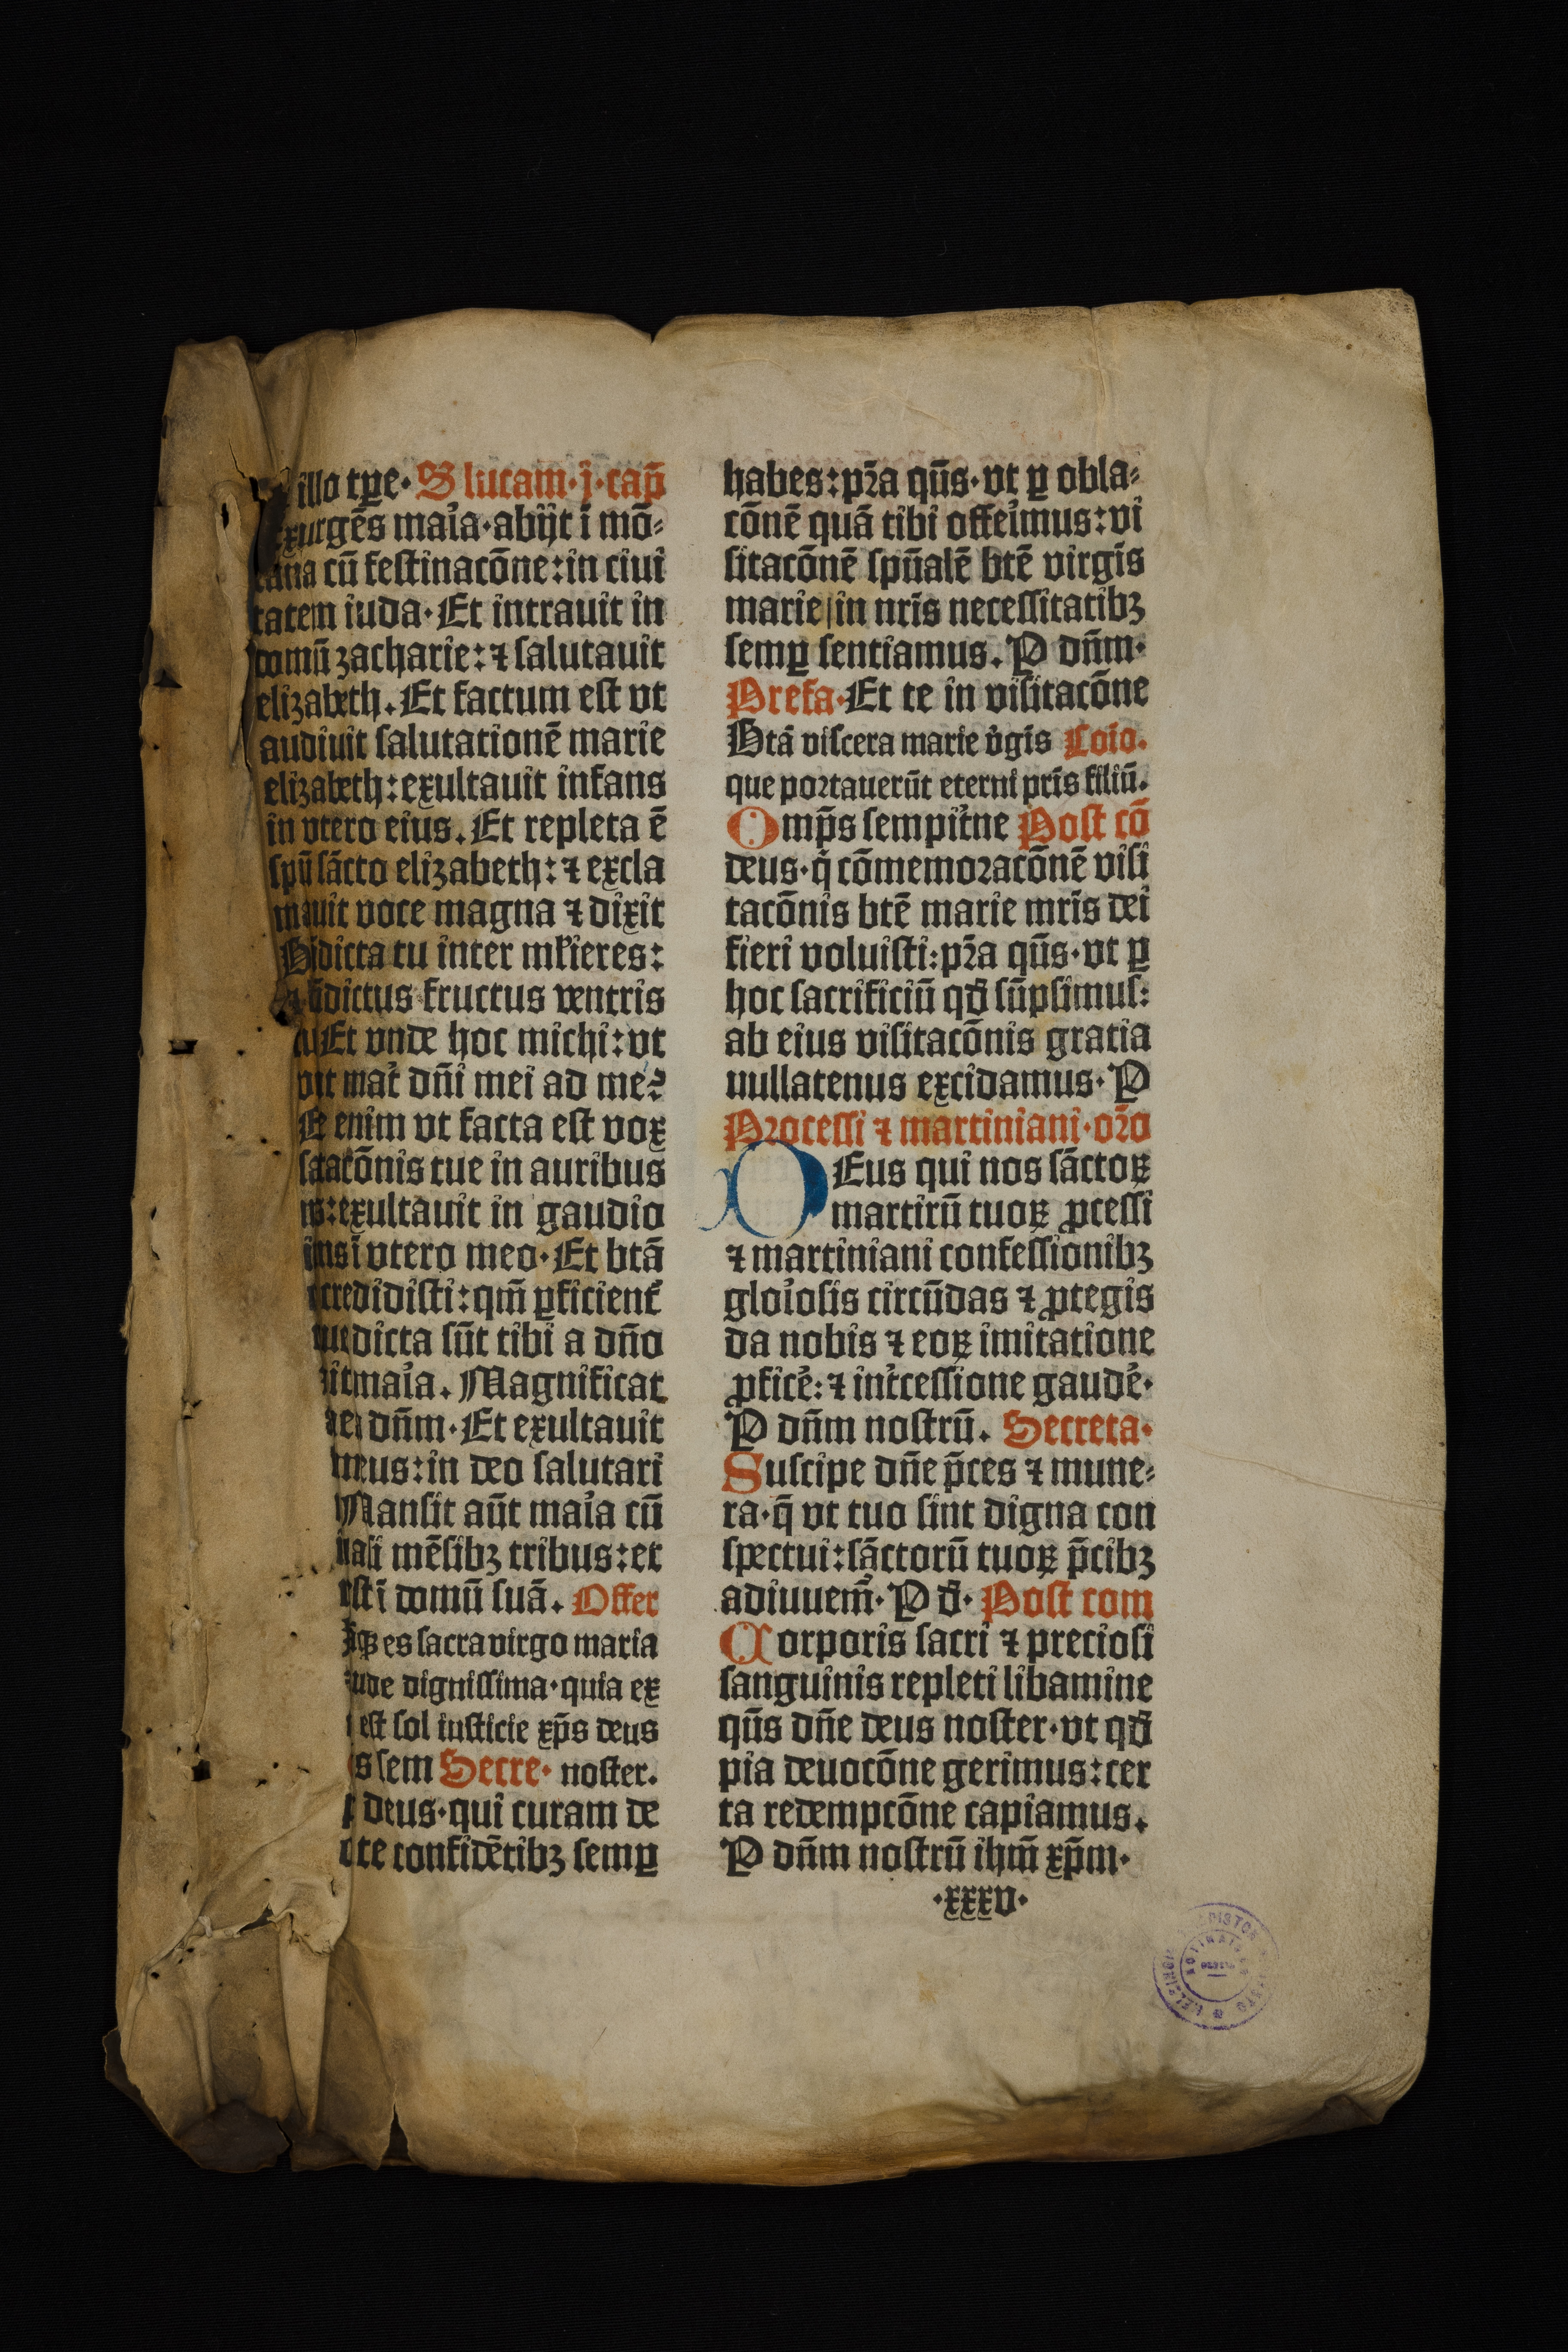 illo tꝑe· S lucam·j·cap̄
exurgēs maͥa·abijt ī mō⸗
tana cū festinacōne: in ciui
tatem iuda· Et intrauit in
domū zacharie: ⁊ salutauit
elizabeth. Et factum est vt
audiuit salutationē marie
elizabeth: exultauit infans
in vtero eius. Et repleta ē
spū sācto elizabeth: ⁊ excla
mauit voce magna ⁊ dixit
Bn̄dicta tu inter mĺieres:
⁊ bn̄dictus fructus ventris
tui Et vnde hoc michi: vt
mat̉ dn̄i mei ad me?
enim vt facta est vox
tacōnis tue in auribus
exultauit in gaudio
ī vtero meo· Et btā
credidisti: qm̄ ꝑficient̉
dicta sūt tibi a dn̄o
maͥa. Magnificat
dn̄m· Et exultauit
meus: in deo salutari
Mansit aūt maͥa cū
quasi mēsibꝫ tribus: et
ī domū suā. Offer
es sacra virgo maria
dignissima· quia ex
est sol iusticie xp̄s deus
sem Secre· noster.
deus· qui curam de
te confidētibꝫ semꝑ
habes: pr̄a qūs· vt ꝑ obla⸗
cōnē quā tibi offeimus: vi
sitacōnē spūalē btē virgīs
marie in nr̄is necessitatibꝫ
semꝑ sentiamus. P dn̄m·
Prefa· Et te in visitacōne
Btā viscera marie v̉gis Coīo.
que portauerūt eterni pr̄is filiū.
Omp̄s sempit̉ne Post cō
deus· q̇ cōmemoracōnē visi
tacōnis btē marie mr̄is dei
fieri voluisti: pr̄a qūs· vt ꝑ
hoc sacrificiū qd̄ sūpsimus:
ab eius visitacōnis gratia
nullatenus excidamus· P
Processi ⁊ martiniani· or̄o
DEus qui nos sāctoꝝ
martirū tuoꝝ ꝓcessi
⁊ martiniani confessionibꝫ
gloͥosis circūdas ⁊ ꝓtegis
da nobis ⁊ eoꝝ imitatione
ꝓficē: ⁊ int̉cessione gaudē·
P dn̄m nostrū. Secreta·
Suscipe dn̄e p̄ces ⁊ mune⸗
ra· q̄ vt tuo sint digna con
spectui: sāctorū tuoꝝ p̄cibꝫ
adiuuem̄· P d̄· Post com
Corporis sacri ⁊ preciosi
sanguinis repleti libamine
qūs dn̄e deus noster· vt qd̄
pia deuocōne gerimus: cer
ta redempcōne capiamus.
P dn̄m nostrū ihm̄ xp̄m·
·xxxv·